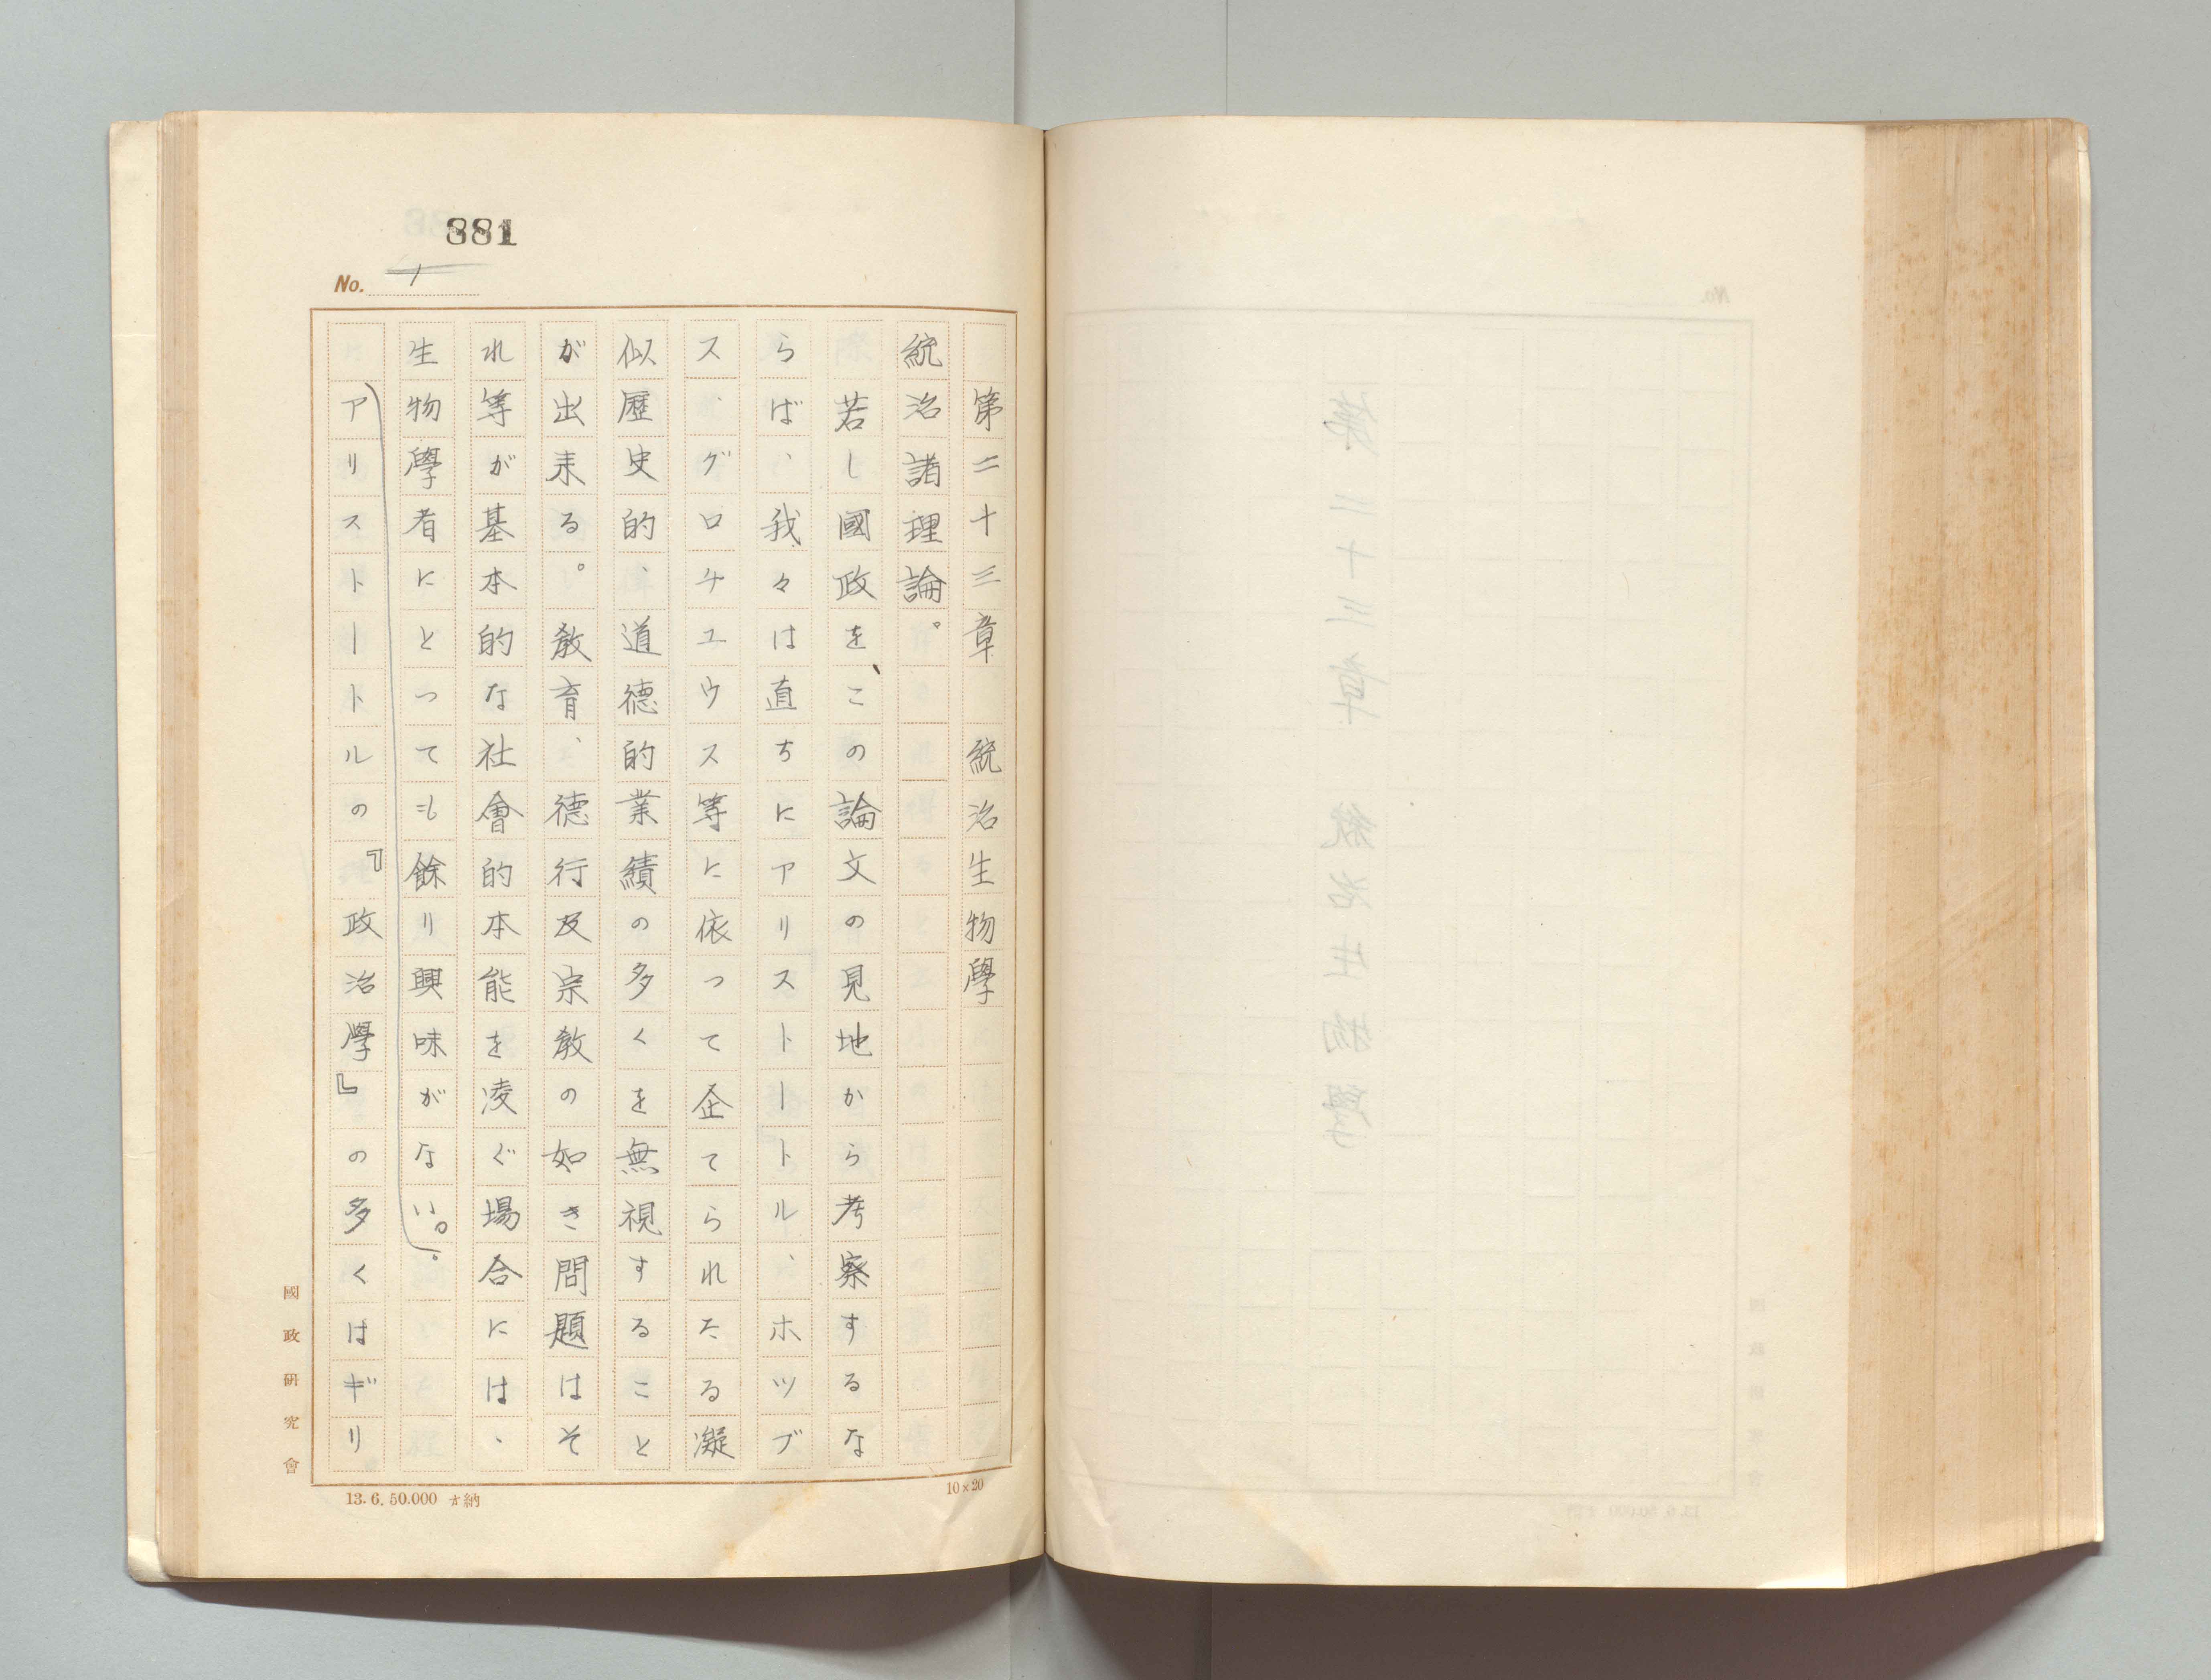 881
No. 1
第二十三章　統治生物學
統治諸理論。
若し國政を、この論文の見地から考察するな
らば、我々は直ちにアリストートル、ホツブ
ス、グロチユウス等に依つて企てられたる凝
似歴史的、道德的業績の多くを無視すること
が出来る。教育、德行及宗教の如き問題はそ
れ等が基本的な社會的本能を凌ぐ場合には、
生物學者にとつても餘り興味がない。
アリストートルの『政治學』の多くはギリ
國政研究會
13. 6. 50.000 納
10×20